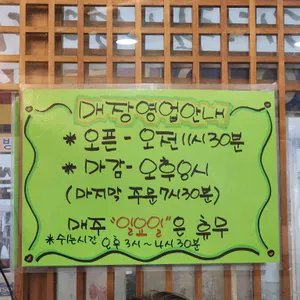 매장영업안내
* 오픈 - 오전 11시 30분
* 마감 - 오후 8시
(마지막 주문 7시 30분)
매주 "일요일"은 휴무
* 쉬는시간 오후 3시 ~ 4시 30분